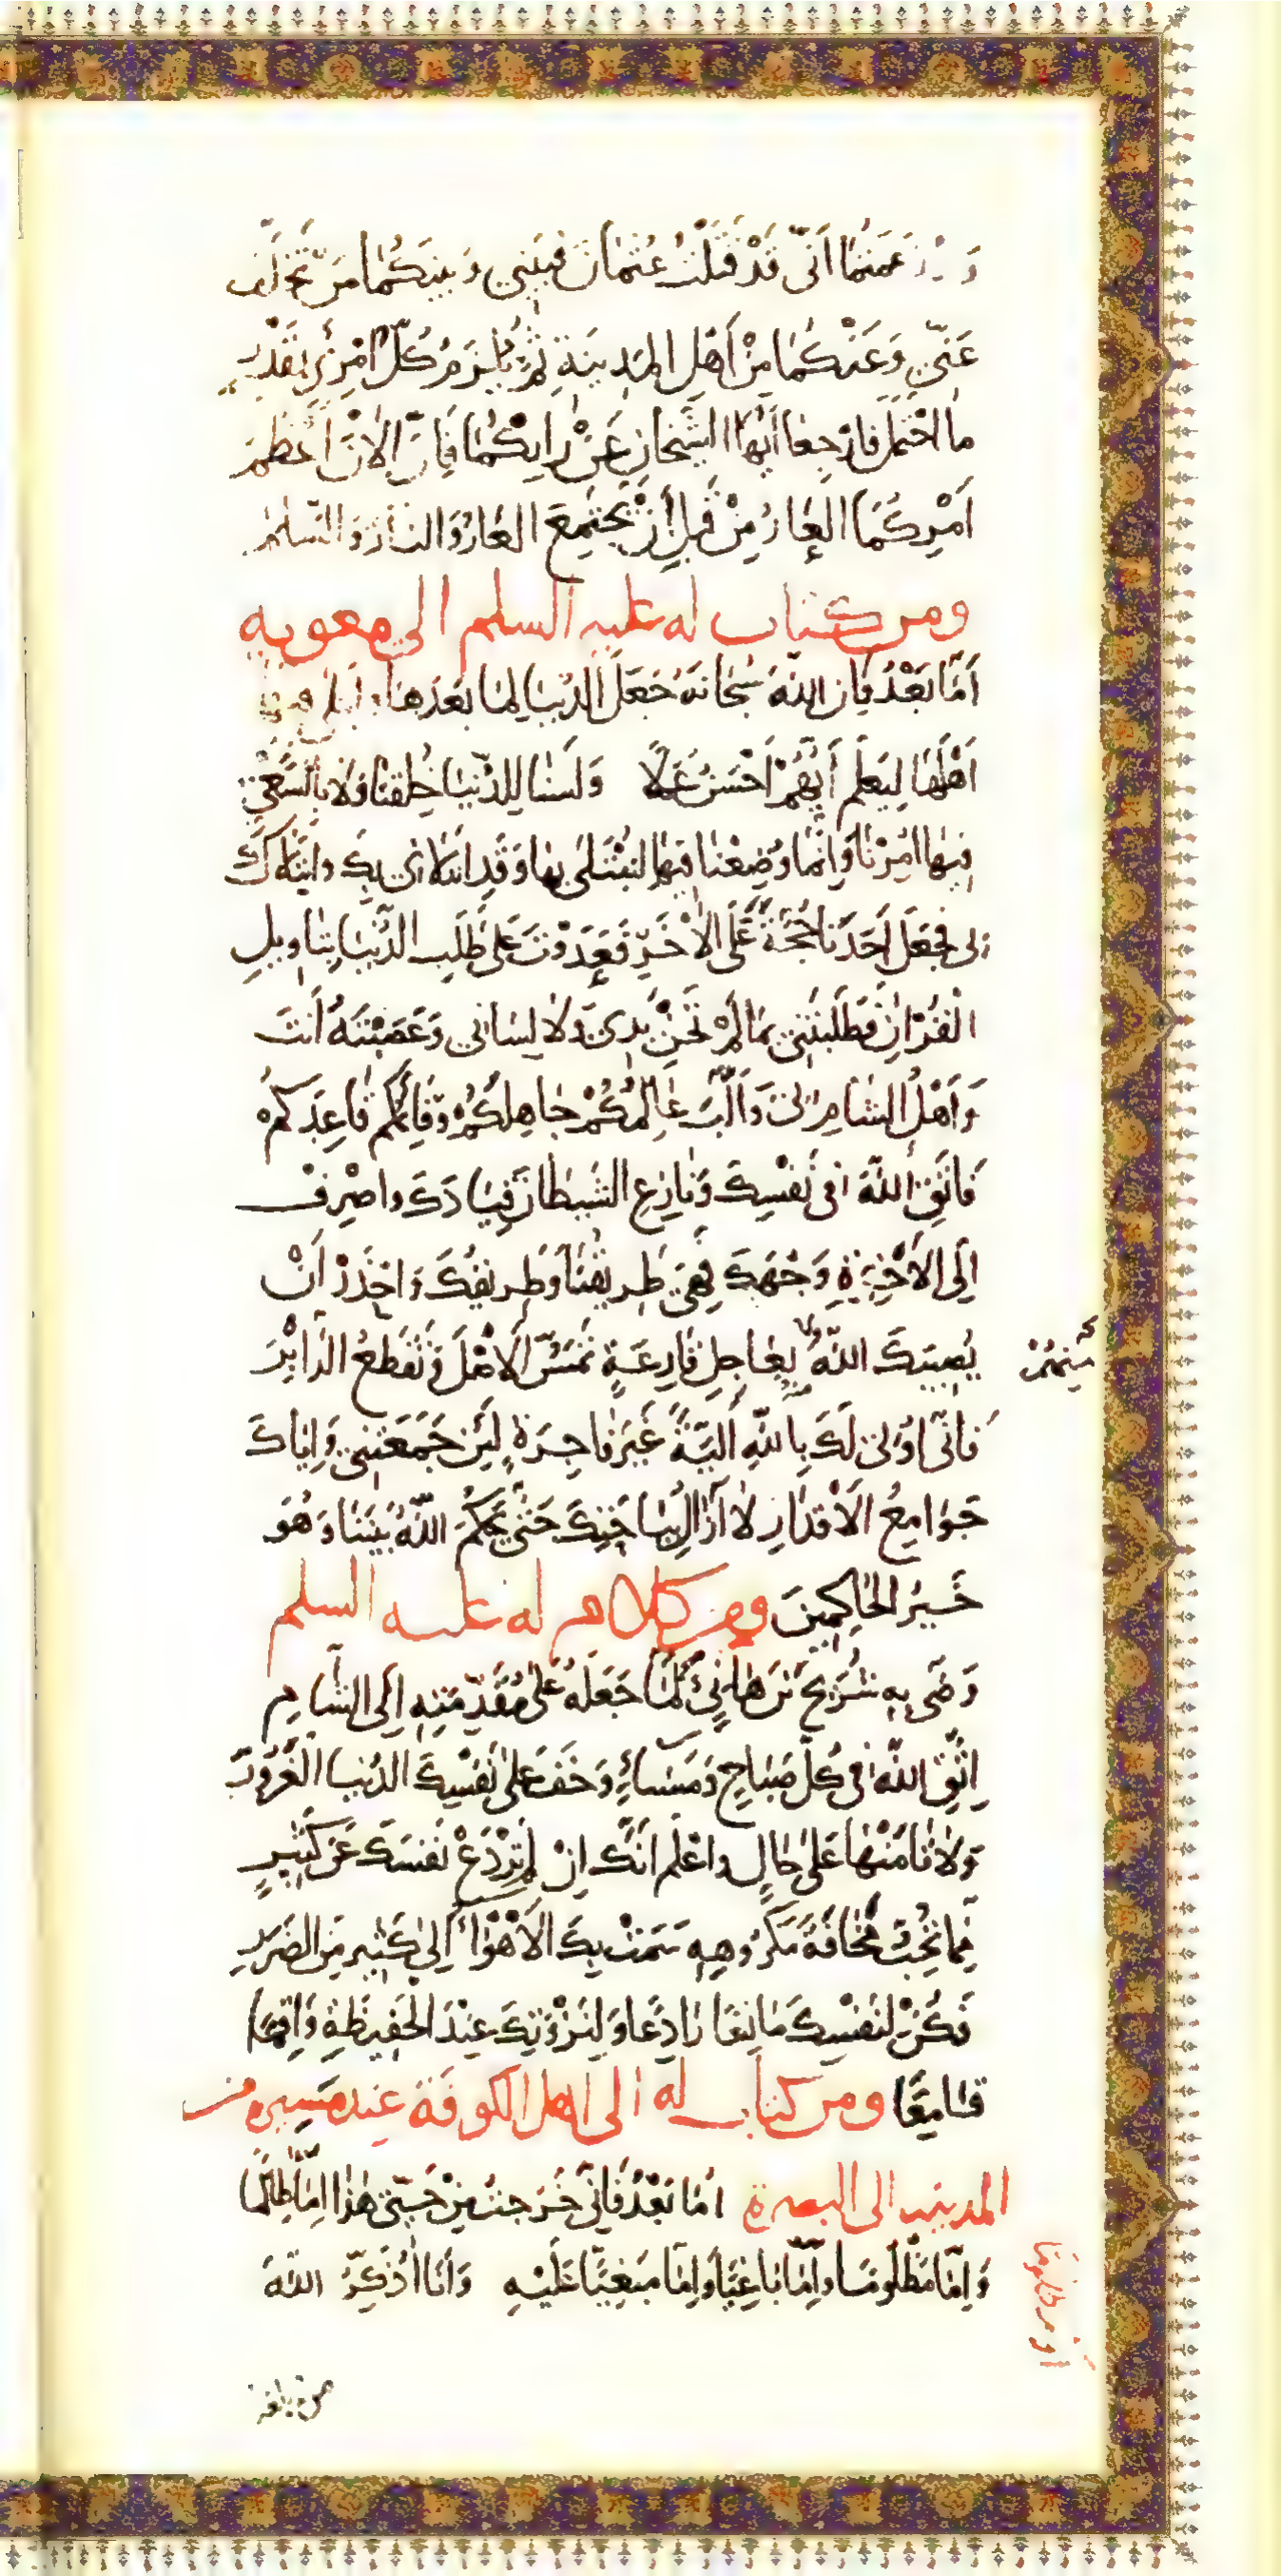 وَ زَعَمْتُمَا اَنّى قَدْ قَتَلْتُ عُثْمَانَ فَبَيْنِي وَ بَيْنَكُمَا مَنْ تَخَلَّفَ
عَنّي وَعَنْكُمَا مِنْ اَهْلِ المَدِينَةِ ثُمَّ يُلْزَمُ كُلُّ امْرِئٍ بِقَدْرِ
مَا احْتَمَلَ فَارْجِعَا اَيُّهَا الشَّيْخَانِ عَنْ رَأيِكُمَا فَاِنَّ الاٰنَ اَعْظَمُ
اَمْرِكُمَا العَارُ مِنْ قَبْلِ اَنْ يَجْتَمِعَ العَارُ وَ النَّارُ وَ السَّلٰمُ
ومن كتاب له عليه السلم الى معويه
اَمَّا بَعْدُ فَاِنَّ اللّٰهَ سُبْحَانَهُ جَعَلَ الدُّنْيَا لِمَا بَعْدَهَا وَابْتَلى فِيهَا
اَهْلَهَا لِيَعْلَمَ اَيُّهُمْ اَحْسَنُ عَمَلًا وَلَسْنَا لِلدُّنْيَا خُلِقْنَا وَلَا بِالسَّعْىِ
فِيهَا اُمِرْنَا وَاِنَّمَا وُضِعْنَا فِيهَا لِنُبْتَلى بِهَا وَ قَدِ ابْتَلَانى بِكَ وابْتَلَاكَ
بى فَجَعَلَ اَحَدَنَا حُجَّةً عَلَى الاٰخَرِ فَعَدَوْتَ عَلى طَلَبِ الدُّنْيَا بِتَاوِيلِ
الْقُرْاٰنِ فَطَلَبْتَنِى بِمَا لَمْ تَجْنِ يَدِى وَلَا لِسَانِي وَعَصَبْتَهُ اَنْتَ
وَ اَهْلُ الشَّامِ بى وَ اَلَّبَ عَالِمُكُمْ جَاهِلَكُمْ وَ قَائِمُكُمْ قَاعِدَكُمْ
فَاتَّقِ اللّٰهَ فى نَفْسِكَ وَ نَازِعِ الشَّيْطَانَ قِيَادَكَ واصْرِفْ
اِلَى الاٰخِرَةِ وَجْهَكَ فَهِيَ طَرِيقُنَا وَطَرِيقُكَ وَ احْذَرْ اَنْ
يُصِيبَكَ اللّٰهُ بِعَاجِلِ قَارِعَةٍ تَمَسُّ الْاَصْلَ وَ تَقْطَعُ الدَّابِرَ
مِنْهُ
فَاِنّى اُولى لَكَ بِاللّٰهِ اَلِيَّةً غَيْرَ فَاجِرَةٍ لَئِنْ جَمَعَتْنِى وَ اِيَّاكَ
جَوَامِعُ الْاَقْدَارِ لَا اَزَالُ بِبَاحَتِكَ حَتّى يَحْكُمَ اللّٰهُ بَيْنَنَا وَ هُوَ
خَيْرُ الْحَاكِمِينَ ومن كلام له عليه السلم
وَصّى بِهِ شُرَيْحَ بْنَ هَانِئٍ لَمَّا جَعَلَهُ عَلى مُقَدِّمَتِهِ اِلَى الشَّامِ
اِتَّقِ اللّٰهَ فى كُلِّ صَبَاحٍ وَ مَسَاءٍ وَ خَفْ عَلى نَفْسِكَ الدُّنْيَا الْغَرُورَ
وَلَا تَامَنْهَا عَلى حَالٍ واعْلَمْ اَنَّكَ اِنْ لَمْ تَرْدَعْ نَفْسَكَ عَنْ كَثِيرٍ
مِمَّا تُحِبُّ مَخَافَةَ مَكْرُوهِهِ سَمَتْ بِكَ الْاَهْوَاءُ اِلى كَثِيرٍ مِنَ الضَّرَرِ
فَكُنْ لِنَفْسِكَ مَانِعًا رَادِعًا وَ لِنَزْوَتِكَ عِنْدَ الْحَفِيظَةِ وَاقِمًا
قَامِعًا ومن كتاب له الى اهل الكوفة عند مسيره من
المدينه الى البصرة اَمَّا بَعْدُ فَاِنّى خَرَجْتُ مِنْ حَيِّى هٰذَا اِمَّا ظَالِمًا
وَ اِمَّا مَظْلُومًا واِمَّا بَاغِيًا وَ اِمَّا مَبْغِيًّا عَلَيْهِ وَ اَنَا اُذَكِّرُ اللّٰهَ
او مظلوما
من بلغه